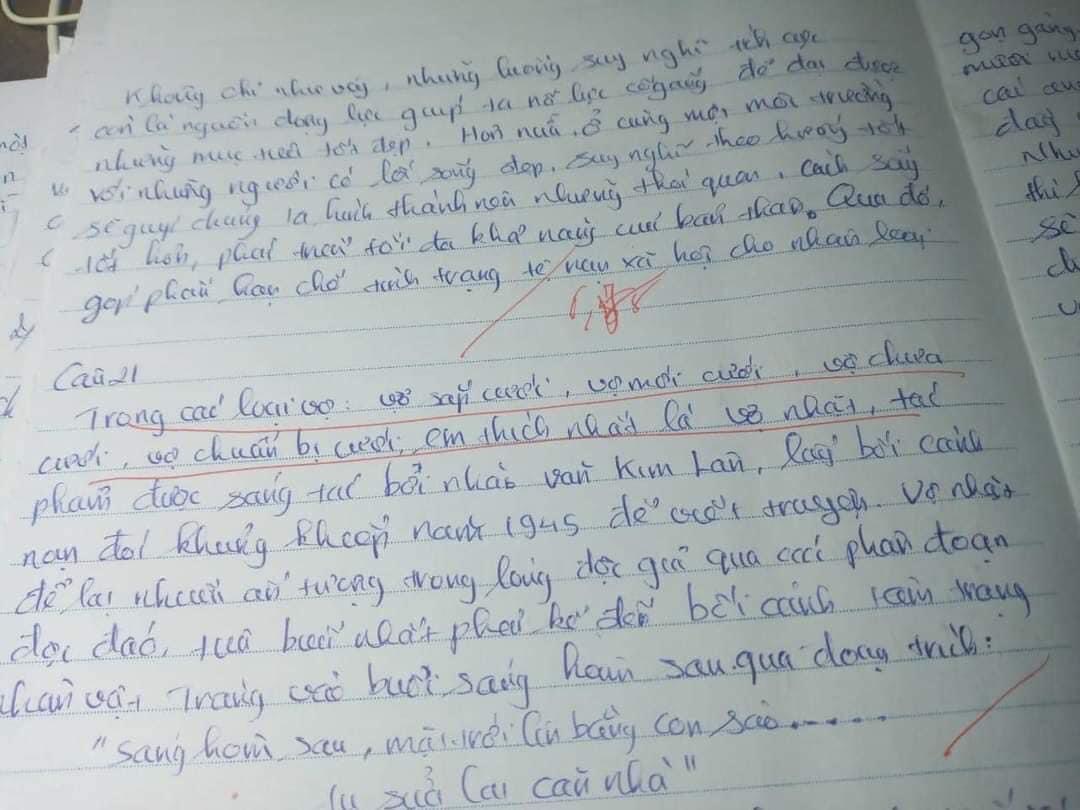 Không chỉ như vậy, những hướng suy nghĩ tích cực
còn là nguồn động lực giúp ta nỗ lực cố gắng để đạt được
những mục tiêu tốt đẹp. Hơn nữa, ở cùng một môi trường
với những người có lối sống đẹp, suy nghĩ theo hướng tốt
sẽ giúp chúng ta hình thành nên những thói quen, cách sống
tốt hơn, phát triển tối đa khả năng của bản thân. Qua đó,
góp phần hạn chế tình trạng tệ nạn xã hội cho nhân loại
Câu 2)
Trong các loại vợ: vợ sắp cưới, vợ mới cưới, vợ chưa
cưới, vợ chuẩn bị cưới, em thích nhất là vợ nhặt, tác
phẩm được sáng tác bởi nhà văn Kim Lân, lấy bối cảnh
nạn đói khủng khiếp năm 1945 để viết truyện. Vợ nhặt
để lại nhiều ấn tượng trong lòng độc giả qua các phân đoạn
độc đáo, tiêu biểu nhất phải kể đến bối cảnh tâm trạng
nhân vật Tràng vào buổi sáng hôm sau qua đoạn trích:
"Sáng hôm sau, mặt trời lên bằng con sào......
tu sửa lại căn nhà"
gọn gàng
dậy
Như
thì
sẽ